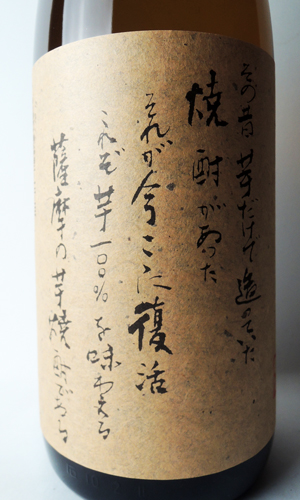 その昔芋だけで造っていた
焼酎があった
それが今ここに復活
これぞ芋一〇〇%を味わえる
薩摩の芋焼酎である